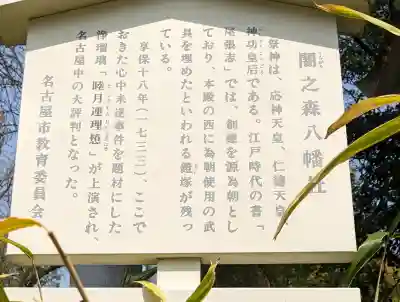 闇之森八幡社
祭神は、応神天皇、仁徳天皇、
神功皇后である。江戸時代の書「
尾張志」では、創建を源為朝とし
ており、本殿の西に為朝使用の武
具を埋めたといわれる鎧塚が残っ
ている。
享保十八年(一七三三)、ここで
おきた心中未遂事件を題材にした
浄瑠璃「睦月連理𢡛」が上演され、
名古屋中の大評判となった。
名古屋市教育委員会